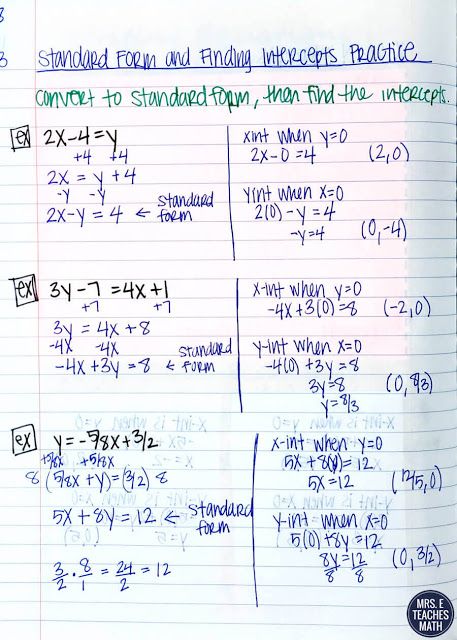 8
3
Standard Form and Finding Intercepts Practice
Convert to standard form, then find the intercepts.
ex 2x-4=y
+4 +4
2x = y +4
-y -y
2x-y = 4 ← standard form
x int when y=0
2x-0=4 (2,0)
y int when x=0
2(0)-y=4
-y=4 (0,-4)
ex 3y-7=4x+1
+7 +7
3y = 4x+8
-4x -4x
-4x+3y=8 ← standard form
x-int when y=0
-4x+3(0)=8 (-2,0)
y-int when x=0
-4(0)+3y=8
3y=8 (0,8/3)
y=8/3
ex y=-5/8x+3/2
+5/8x +5/8x
8(5/8x+y)=(3/2)8
5x+8y=12 ← standard form
3/2 · 8/1 = 24/2 = 12
x-int when y=0
5x+8(0)=12
5x=12 (12/5,0)
y-int when x=0
5(0)+8y=12
8y=12 (0,3/2)
8 8
MRS. E
TEACHES
MATH